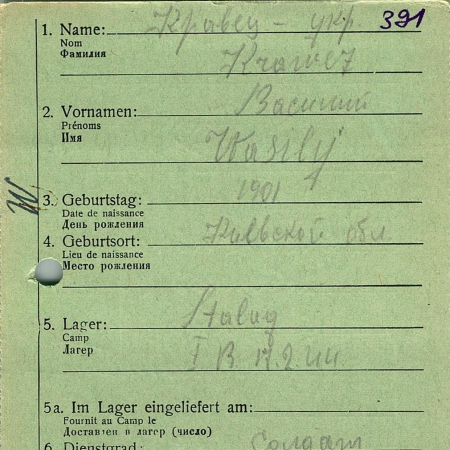 391
1. Name: Кравец - укр.
Nom
Фамилия Krawez
2. Vornamen: Василий
Prénoms
Имя Wasilij
3. Geburtstag: 1901
Date de naissance
День рождения
4. Geburtsort: обл
Lieu de naissance
Место рождения
5. Lager: Stalag
Camp
Лагер I B 17.2.
5a. Im Lager eingeliefert am:
Fournit au Camp le
Доставлен в лагер (число)
6. Dienstgrad: Солдат